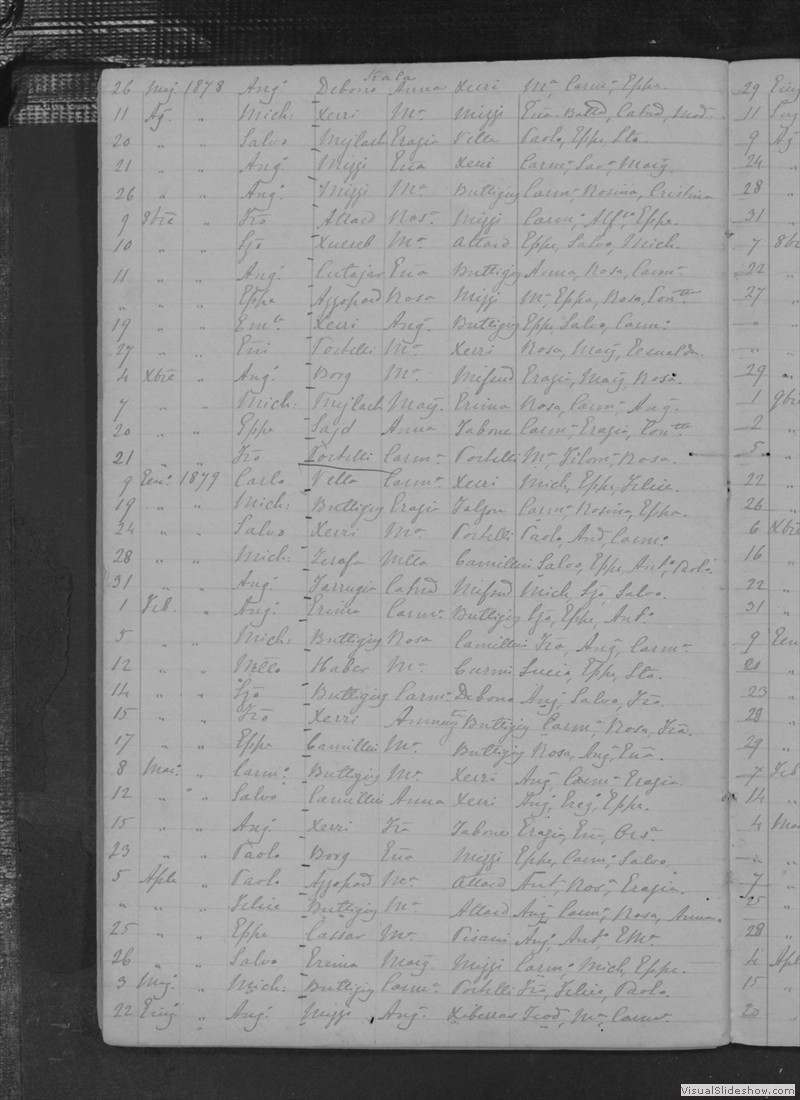 Xcala
26 Maj. 1878 Ang.o Debono Anna Xerri Ma, Carm.a, Eppa.
11 Ag. " Mich: Xerri Ma Mizzi
20 " " Salvo Mejlach Eragia Vella Paolo, Eppe, Sta.
21 " " Ang.o Mizzi Ena Xerri Carm.a, Sav.a, Maj.
26 " " Ang.o Mizzi Ma Buttigieg Carm.a, Rosina, Cristina
9 8bre " Fco Attard Ros.a Mizzi Carm.a, Alf.o, Eppe.
10 " " Gjo Xuereb Ma Attard Eppe, Salvo, Mich.
11 " " Ang.o Cutajar Ena Buttigieg Anna, Rosa, Carm.a
" " " Eppe Azzopard Rosa Mizzi Ma Eppa, Rosa, Con.tta
19 " " Em.le Xerri Ang.a Buttigieg Eppe Salvo, Carm.o
27 " " Portelli Ma Xerri Rosa, Maj.
4 Xbre " Ang.o Borg Ma Mifsud Eragia, Maj. Rosa.
7 " " Mich: Mejlach Maj. Erima Rosa, Carm.a Ang.
20 " " Eppe Sajd Anna Tabone Carm.a Eragia, Con.tta
21 " " Fco Portelli Carm.a Portelli Ma, Filom.a Rosa.
9 Een.o 1879 Carlo Vella Carm.a Xerri Mich, Eppe, Felice.
19 " " Mich: Buttigieg Eragia Falzon Carm.a Rosina, Eppa.
24 " " Salvo Xerri Ma Portelli Paolo, And, Carm.o
28 " " Mich: Zerafa Camilleri Salvo, Eppe Ant.o, Paolo.
31 " " Ang.o Farrugia Mifsud Mich, Gjo, Salvo.
1 Feb. " Ang.o Erima Carm.a Buttigieg Gjo, Eppe, Ant.o
5 " " Mich: Buttigieg Rosa Camilleri Fco, Ang, Carm.a
12 " " Nello Haber Ma Curmi Lucia, Eppe, Sta.
14 " " Gjo Buttigieg Carm.a Debono Ang, Salvo, Fco.
15 " " Fco Xerri Buttigieg Carm.a, Rosa, Fca.
17 " " Eppe Camilleri Ma Buttigieg Rosa, Ang, Ena.
8 Mar.o " Carm.o Buttigieg Ma Xerri Ang, Carm.a Eragia.
12 " " Salvo Camilleri Anna Xerri Ang, Greg, Eppe.
15 " " Ang.o Xerri Fca Tabone Eragia, Ena, Ors.a
23 " " Paolo Borg Ena Mizzi Eppe, Carm.o Salvo.
5 Aple " Paolo Azzopard Ma Attard Ant, Ros.a, Eragia.
" " " Felice Buttigieg Ma Attard Ang, Carm.a, Rosa, Anna.
25 " " Eppe Cassar Ma Pisani Ang, Ant.o EMa.
26 " " Salvo Erima Maj. Mizzi Carm.o Mich, Eppe.
3 Maj. " Mich: Buttigieg Carm.a Portelli Fco, Felice, Paolo.
22 " Ang.o Mizzi Ang.a Xiberras Ma, Carm.a
29
11
9 Ag
24
28
31
7 8bre
22
27
"
"
29
1 9bre
2
5
22
26
6 Xbre
16
22
31
9 Een
20
23
28
29
7 Feb
14
4 Mar
"
7
25
28
4 Apl
15
20
VisualSlideshow.com